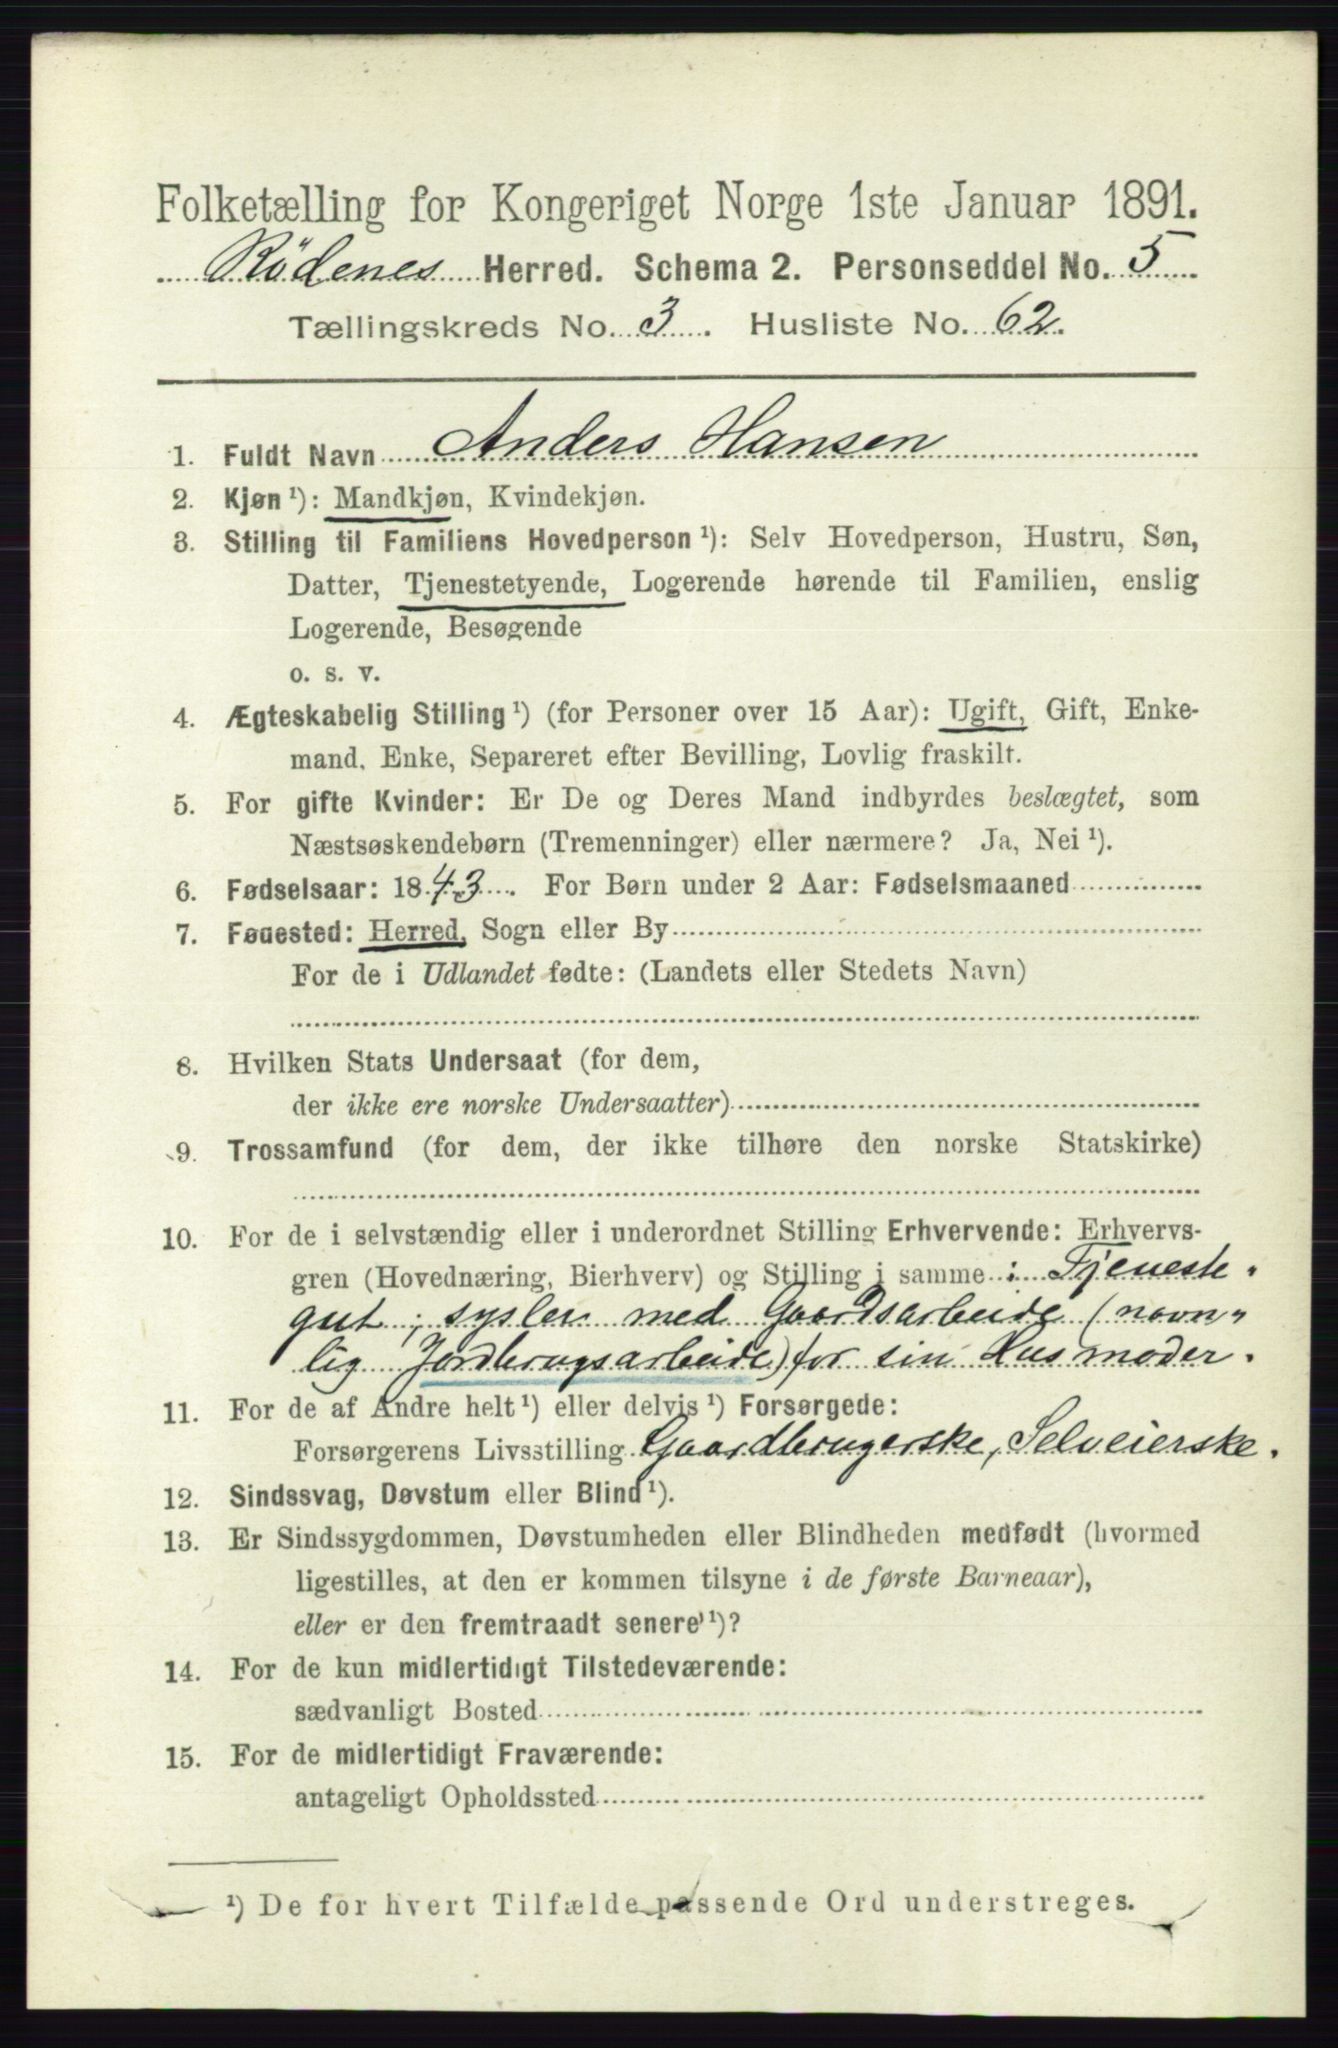 Folketælling for Kongeriget Norge 1ste Januar 1891.
Rödenes Herred. Schema 2. Personseddel No. 5
Tællingskreds No. 3. Husliste No. 62.
1. Fuldt Navn Anders Hansen
2. Kjøn ¹): Mandkjøn, Kvindekjøn.
3. Stilling til Familiens Hovedperson ¹): Selv Hovedperson, Hustru, Søn,
Datter, Tjenestetyende, Logerende hørende til Familien, enslig
Logerende, Besøgende
o. s. v.
4. Ægteskabelig Stilling ¹) (for Personer over 15 Aar): Ugift, Gift, Enke-
mand, Enke, Separeret efter Bevilling, Lovlig fraskilt.
5. For gifte Kvinder: Er De og Deres Mand indbyrdes beslægtet, som
Næstsøskendebørn (Tremenninger) eller nærmere? Ja, Nei ¹).
6. Fødselsaar: 1843. For Børn under 2 Aar: Fødselsmaaned
7. Fødested: Herred, Sogn eller By
For de i Udlandet fødte: (Landets eller Stedets Navn)
8. Hvilken Stats Undersaat (for dem,
der ikke ere norske Undersaatter)
9. Trossamfund (for dem, der ikke tilhøre den norske Statskirke)
10. For de i selvstændig eller i underordnet Stilling Erhvervende: Erhvervs-
gren (Hovednæring, Bierhverv) og Stilling i samme : Tjeneste-
gut; sysler med Gaardsarbeide (navn-
lig Jordbrugsarbeide) for sin Husmoder.
11. For de af Andre helt ¹) eller delvis ¹) Forsørgede:
Forsørgerens Livsstilling Gaardbrugerske, Selveierske.
12. Sindssvag, Døvstum eller Blind ¹).
13. Er Sindssygdommen, Døvstumheden eller Blindheden medfødt (hvormed
ligestilles, at den er kommen tilsyne i de første Barneaar),
eller er den fremtraadt senere ¹)?
14. For de kun midlertidigt Tilstedeværende:
sædvanligt Bosted
15. For de midlertidigt Fraværende:
antageligt Opholdssted
¹) De for hvert Tilfælde passende Ord understreges.